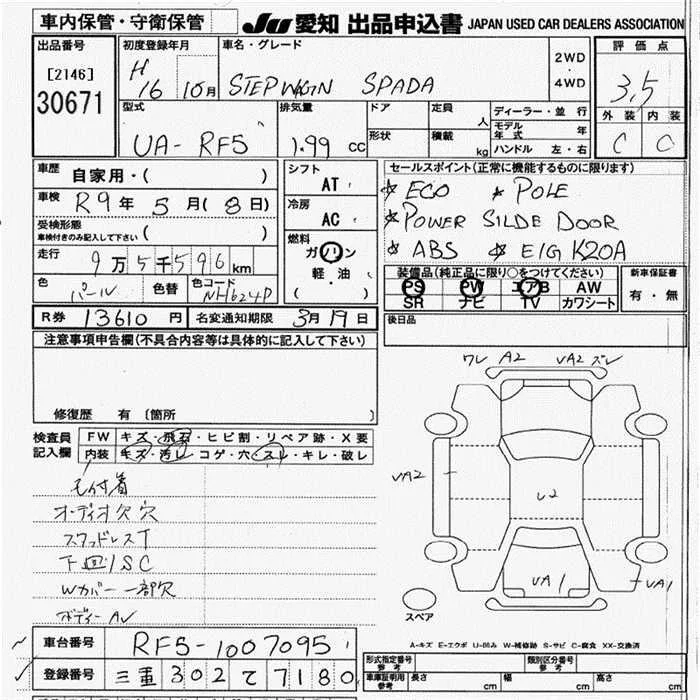 車内保管・守衛保管 JU 愛知 出品申込書 JAPAN USED CAR DEALERS ASSOCIATION
出品番号
[2146]
30671
初度登録年月
H 16 10月
車名・グレード
STEP WAGN SPADA
2WD
・
4WD
評価点
3,5
外装 内装
C C
型式
UA-RF5
排気量
1.99 CC
ドア
形状
定員
人
積載
kg
ディーラー・並行
モデル年式 年
ハンドル 左・右
車歴
自家用・( )
車検
R9年 5月(8日)
受検形態
車検付きのみ記入して下さい ( )
走行
9万5千596km
色
パール
色替
色コード
NH624P
シフト
AT
冷房
AC
燃料
ガソリン
軽・油
( )
セールスポイント(正常に機能するものに限ります)
☆ECO ☆POLE
☆POWER SILDE DOOR
☆ABS ☆E/G K20A
装備品(純正品に限り○をつけてください)
PS PW エアB AW
SR ナビ TV カワシート
新車保証書
有・無
R券 13610円 名変通知期限 3月19日
後日品
注意事項申告欄(不具合内容等は具体的に記入して下さい)
修復歴 有〔箇所 〕
検査員
記入欄
FW キズ・飛石・ヒビ割・リペア跡・X要
内装 キズ・汚レ・コゲ・穴・スレ・キレ・破レ
毛付着
オーディオ欠 穴
下回りSC
Wカバー一部欠
ボディーAV
ワレ A2 UA2 ズレ
UA2
U2
UA1
UA1
スペア
A-キズ E-エクボ U-凹み W-補修跡 S-サビ C-腐食 XX-交換済
車台番号 RF5-1007095
登録番号 三重302て7180
形式指定番号
参考
類別区分番号
参考
車庫証明用
参考
長さ cm 幅 cm 高さ cm